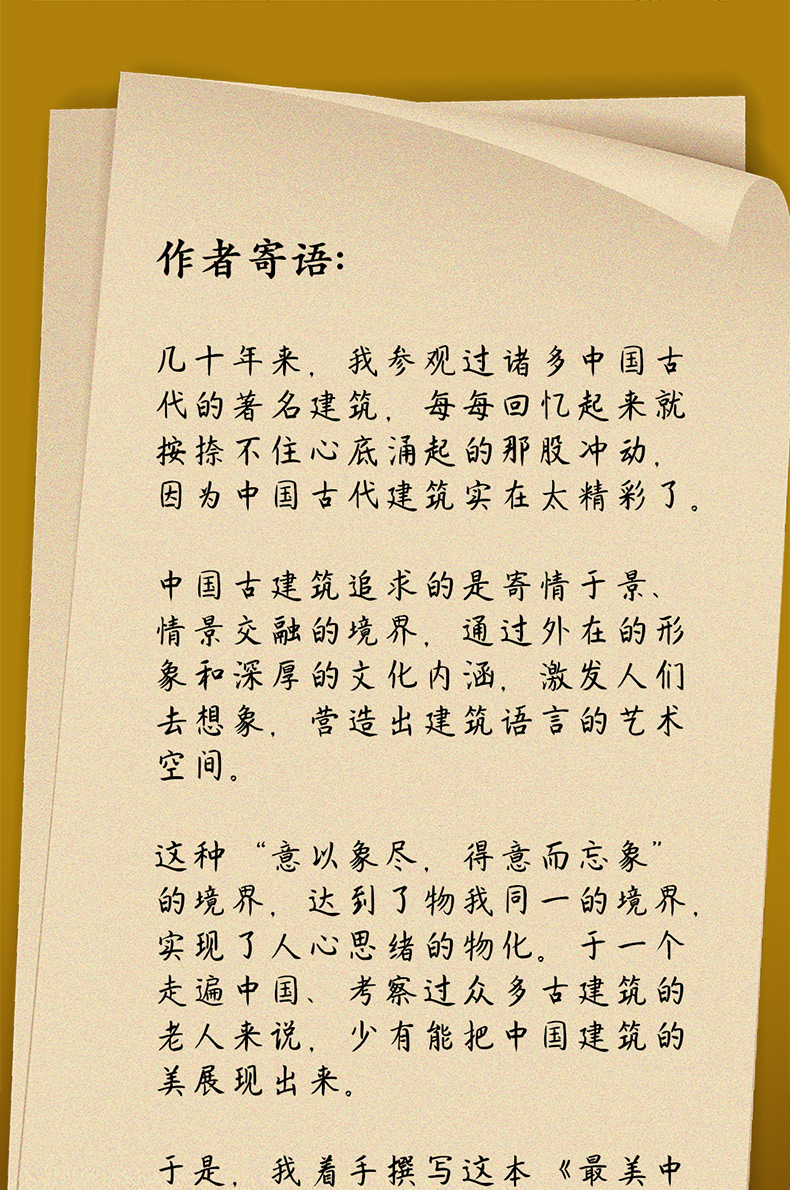 作者寄语:
几十年来，我参观过诸多中国古
代的著名建筑，每每回忆起来就
按捺不住心底涌起的那股冲动，
因为中国古代建筑实在太精彩了。
中国古建筑追求的是寄情于景、
情景交融的境界，通过外在的形
象和深厚的文化内涵，激发人们
去想象，营造出建筑语言的艺术
空间。
这种“意以象尽，得意而忘象”
的境界，达到了物我同一的境界，
实现了人心思绪的物化。于一个
走遍中国、考察过众多古建筑的
老人来说，少有能把中国建筑的
美展现出来。
于是，我着手撰写这本《最美中